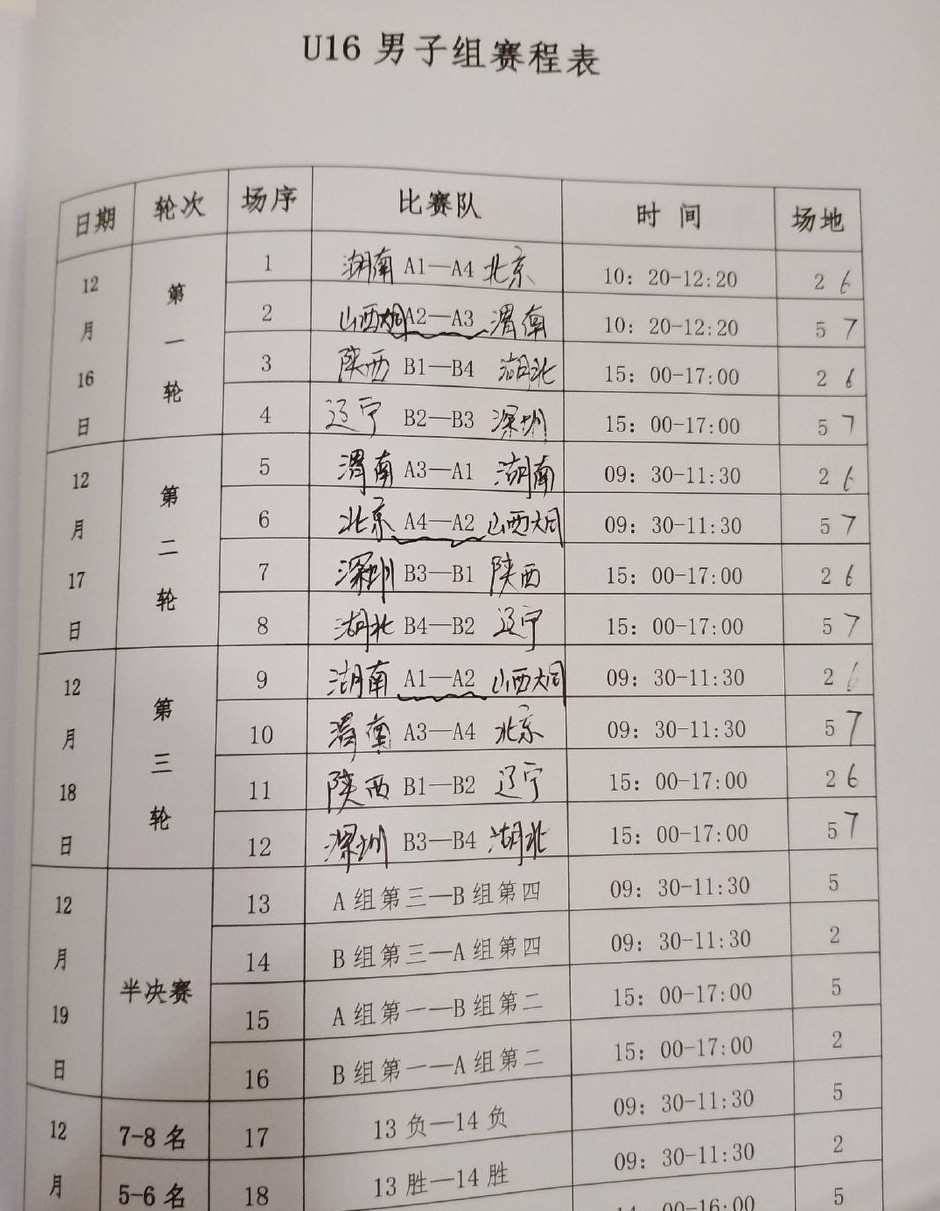 U16 男子组赛程表
日期 轮次 场序 比赛队 时 间 场地
12月16日 第一轮 1 湖南 A1—A4 北京 10: 20-12:20 2 6
2 山西大同 A2—A3 渭南 10: 20-12:20 5 7
3 陕西 B1—B4 湖北 15: 00-17:00 2 6
4 辽宁 B2—B3 深圳 15: 00-17:00 5 7
12月17日 第二轮 5 渭南 A3—A1 湖南 09: 30-11:30 2 6
6 北京 A4—A2 山西大同 09: 30-11:30 5 7
7 深圳 B3—B1 陕西 15: 00-17:00 2 6
8 湖北 B4—B2 辽宁 15: 00-17:00 5 7
12月18日 第三轮 9 湖南 A1—A2 山西大同 09: 30-11:30 2 6
10 渭南 A3—A4 北京 09: 30-11:30 5 7
11 陕西 B1—B2 辽宁 15: 00-17:00 2 6
12 深圳 B3—B4 湖北 15: 00-17:00 5 7
12月19日 半决赛 13 A 组第三—B 组第四 09: 30-11:30 5
14 B 组第三—A 组第四 09: 30-11:30 2
15 A 组第一—B 组第二 15: 00-17:00 5
16 B 组第一—A 组第二 15: 00-17:00 2
12月 7-8 名 17 13 负—14 负 09: 30-11:30 5
5-6 名 18 13 胜—14 胜 09: 30-11:30 2
00-16:00 5